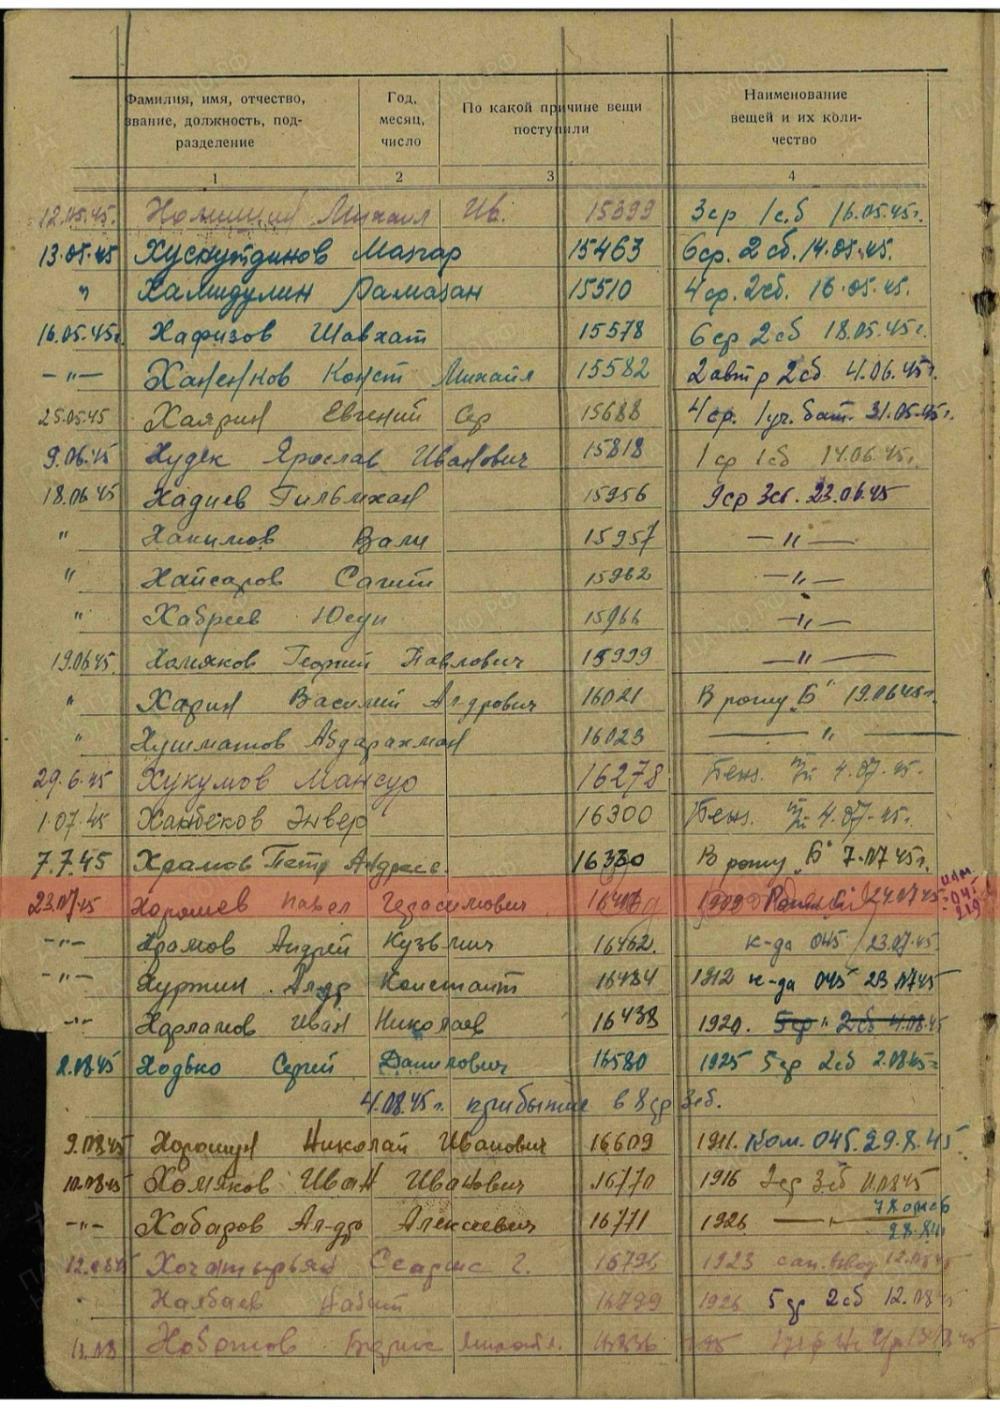 Фамилия, имя, отчество, звание, должность, под- разделение
Год, месяц, число
По какой причине вещи поступили
Наименование вещей и их коли- чество
1 2 3 4
12.05.45. Михаил Ив. 15399 3 ср 1 с.б 16.05.45г.
13.05.45 Хуснутдинов Мазгар 15463 6 ср. 2 сб. 14.05.45.
" Хамидулин Рамазан 15510 4 ср. 2 сб. 16.05.45.
16.05.45г. Хафизов Шавхат 15578 6 ср 2 сб 18.05.45г.
—"— Конст Михайл 15582 2 автр 2 сб 4.06.45г.
25.05.45 Харин Евгений Сер 15688 4 ср. 1 уч. бат. 31.05.45г.
9.06.45 Худек Ярослав Иванович 15818 1 ср 1 сб 14.06.45г.
18.06.45 Хадиев Гильмхан 15956 9 ср 3 сб. 23.06.45
" Хакимов Вали 15957 —"—
" Хайсаров Сагит 15962 —"—
" Хабреев Юсуп 15966 —"—
19.06.45 Хомяков Георгий Павлович 15999 —"—
" Харин Василий Ал-дрович 16021 В роту „Б" 19.06.45г.
" Хушматов Абдарахман 16023 — " —
29.6.45 Хукумов Мансур 16278 4.07.45.
1.07.45 Ханбеков Энвер 16300 4.07.45г.
7.7.45 Храмов Петр Андрее. 16330 В роту „Б" 7.07.45г.
23.07.45 Хорошев Павел Герасимович 1909 24.07.45
—"— Храмов Андрей Кузьмич 16462. к-да 045 23.07.45
—"— Хуржин Ал-др Констант 16484 1912 к-да 045 23.07.45
—"— Харламов Иван Николаев 16438 1920. 5 ср 2 сб 4.08.45
2.08.45 Ходько Сергей Данилович 16580 1925 5 ср 2 сб 2.08.45г
4.08.45г. прибытие в 8 ср 3 сб.
9.08.45 Хорошун Николай Иванович 16609 1911. Ком. 045 29.8.45
10.08.45 Хомяков Иван Иванович 16770 1916 2 ср 3 сб 11.08.45
—"— Хабаров Ал-др Алексеевич 16771 1926 —"—
12.8.45 Саргис Г. 16796 1923 12.08.45
Набит 16799 1926 5 ср 2 сб 12.08.45
13.08 16836